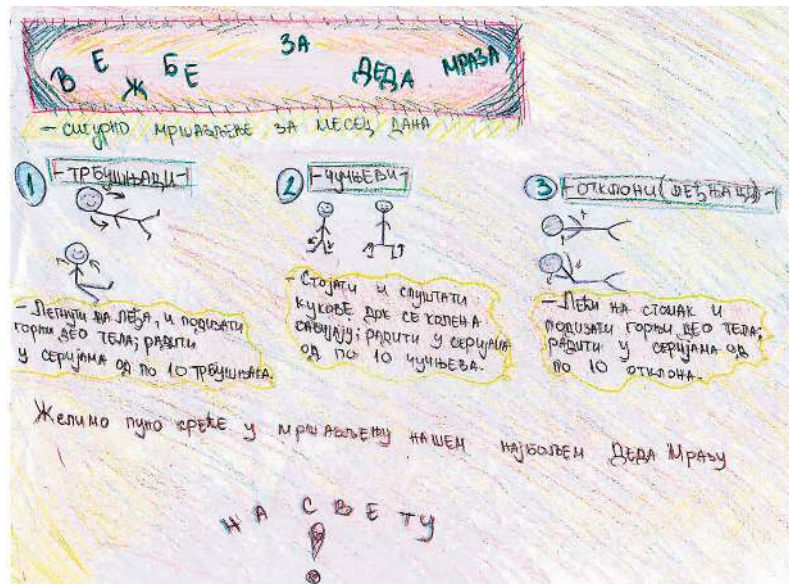 ВЕЖБЕ ЗА ДЕДА МРАЗА
- СИГУРНО МРШАВЉЕЊЕ ЗА МЕСЕЦ ДАНА
1 - ТРБУШЊАЦИ -
- ЛЕГНУТИ НА ЛЕЂА, И ПОДИЗАТИ
ГОРЊИ ДЕО ТЕЛА; РАДИТИ
У СЕРИЈАМА ОД ПО 10 ТРБУШЊАКА.
2 - ЧУЧЊЕВИ -
- СТОЈАТИ И СПУШТАТИ
КУКОВЕ ДОК СЕ КОЛЕНА
САВИЈАЈУ; РАДИТИ У СЕРИЈАМА
ОД ПО 10 ЧУЧЊЕВА.
3 - ОТКЛОНИ (ЛЕЂЊАЦИ) -
- ЛЕЋИ НА СТОМАК И
ПОДИЗАТИ ГОРЊИ ДЕО ТЕЛА;
РАДИТИ У СЕРИЈАМА ОД
ПО 10 ОТКЛОНА.
ЖЕЛИМО ПУНО СРЕЋЕ У МРШАВЉЕЊУ НАШЕМ НАЈБОЉЕМ ДЕДА МРАЗУ
НА СВЕТУ
!